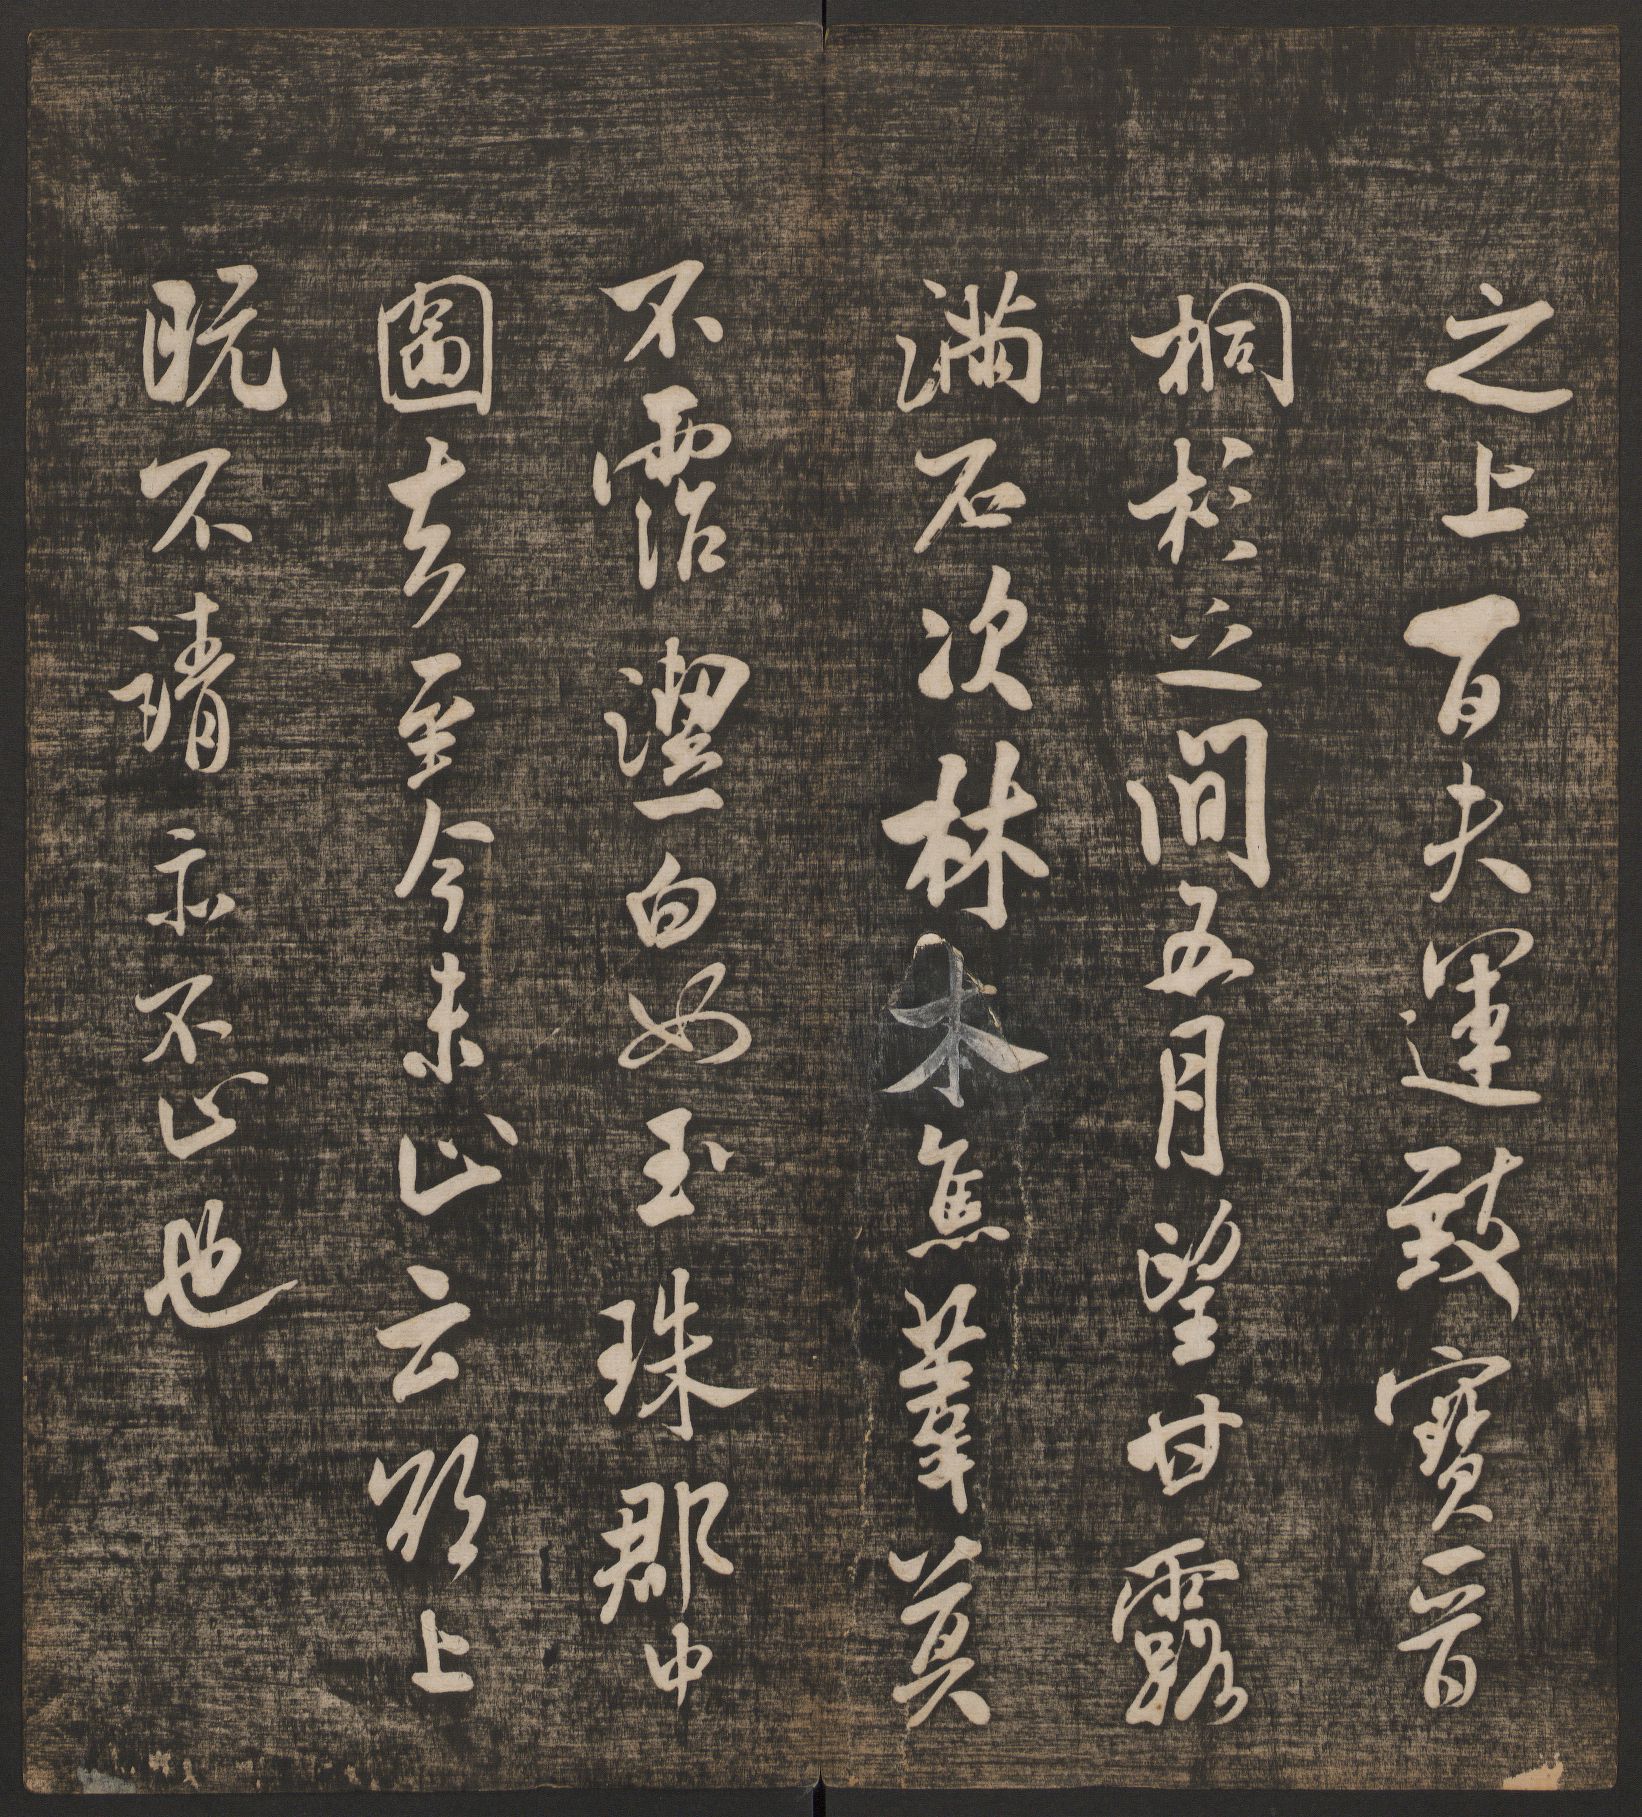 之上百夫運致寶晉
桐杉之間五月望甘露
滿石次林木焦葦莫
不霑潔白如玉珠郡中
圖去至今未止云欲上
既不請亦不止也